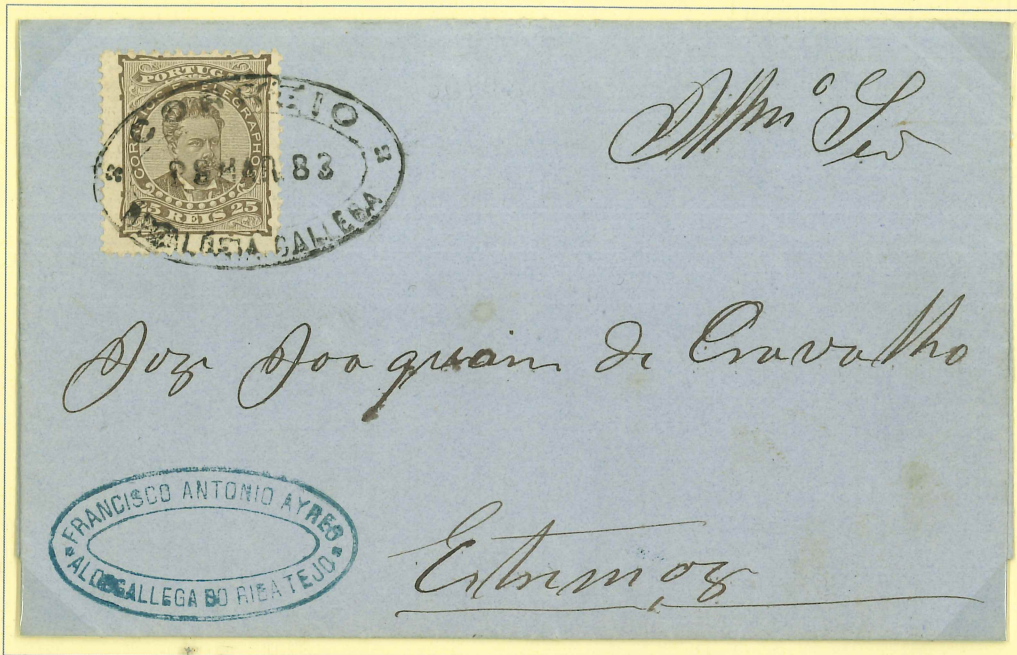 PORTUGAL
CORREIOS E TELEGRAPHOS
25 REIS 25
CORREIO
MAR. 83
ALDEIA GALLEGA
Illmo Snr
Joze Joaquim de Carvalho
Estremoz
FRANCISCO ANTONIO AYRES
ALDEGALLEGA DO RIBATEJO